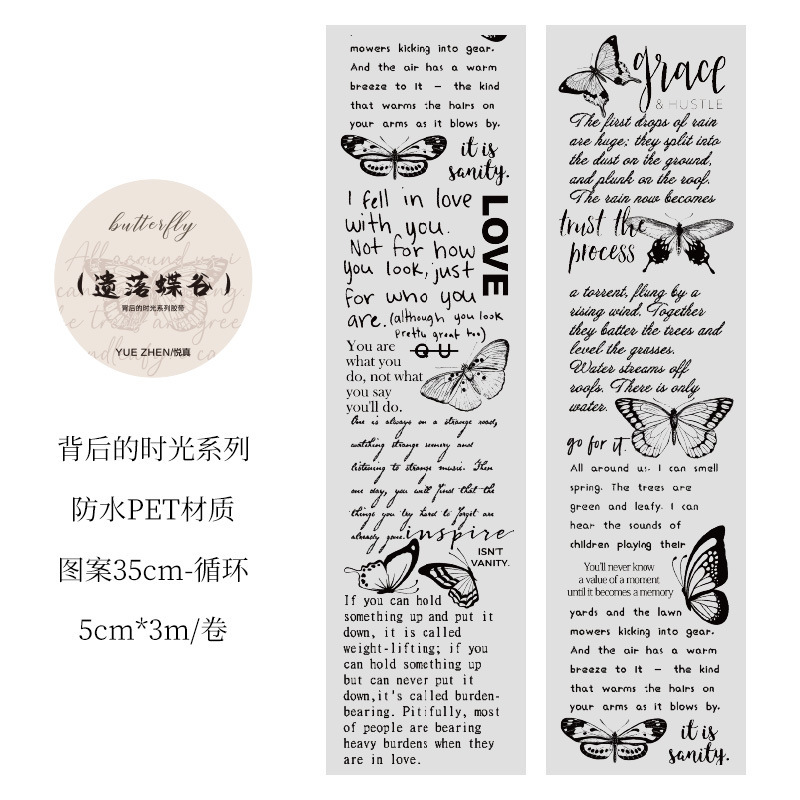 butterfly
（遗落蝶谷）
背后的时光系列胶带
YUE ZHEN/悦真
背后的时光系列
防水PET材质
图案35cm-循环
5cm*3m/卷
mowers kicking into gear.
And the air has a warm
breeze to it — the kind
that warms the hairs on
your arms as it blows by.
it is
sanity.
I fell in love
with you.
Not for how
you look, just
for who you
are. (although you look
pretty great too)
LOVE
QU
You are
what you
do, not what
you say
you'll do.
One is always on a strange road,
watching strange scenery and
listening to strange music. Then
one day, you will find that the
things you try hard to forget are
already gone.
inspire
ISN'T
VANITY.
If you can hold
something up and put it
down, it is called
weight-lifting; if you
can hold something up
but can never put it
down,it's called burden-
bearing. Pitifully, most
of people are bearing
heavy burdens when they
are in love.
grace
& HUSTLE
The first drops of rain
are huge; they split into
the dust on the ground,
and plunk on the roof.
The rain now becomes
trust the
process
a torrent, flung by a
rising wind. Together
they batter the trees and
level the grasses.
Water streams off
roofs. There is only
water.
go for it.
All around us I can smell
spring. The trees are
green and leafy. I can
hear the sounds of
children playing their
You'll never know
a value of a moment
until it becomes a memory
yards and the lawn
mowers kicking into gear.
And the air has a warm
breeze to it — the kind
that warms the hairs on
your arms as it blows by.
it is
sanity.